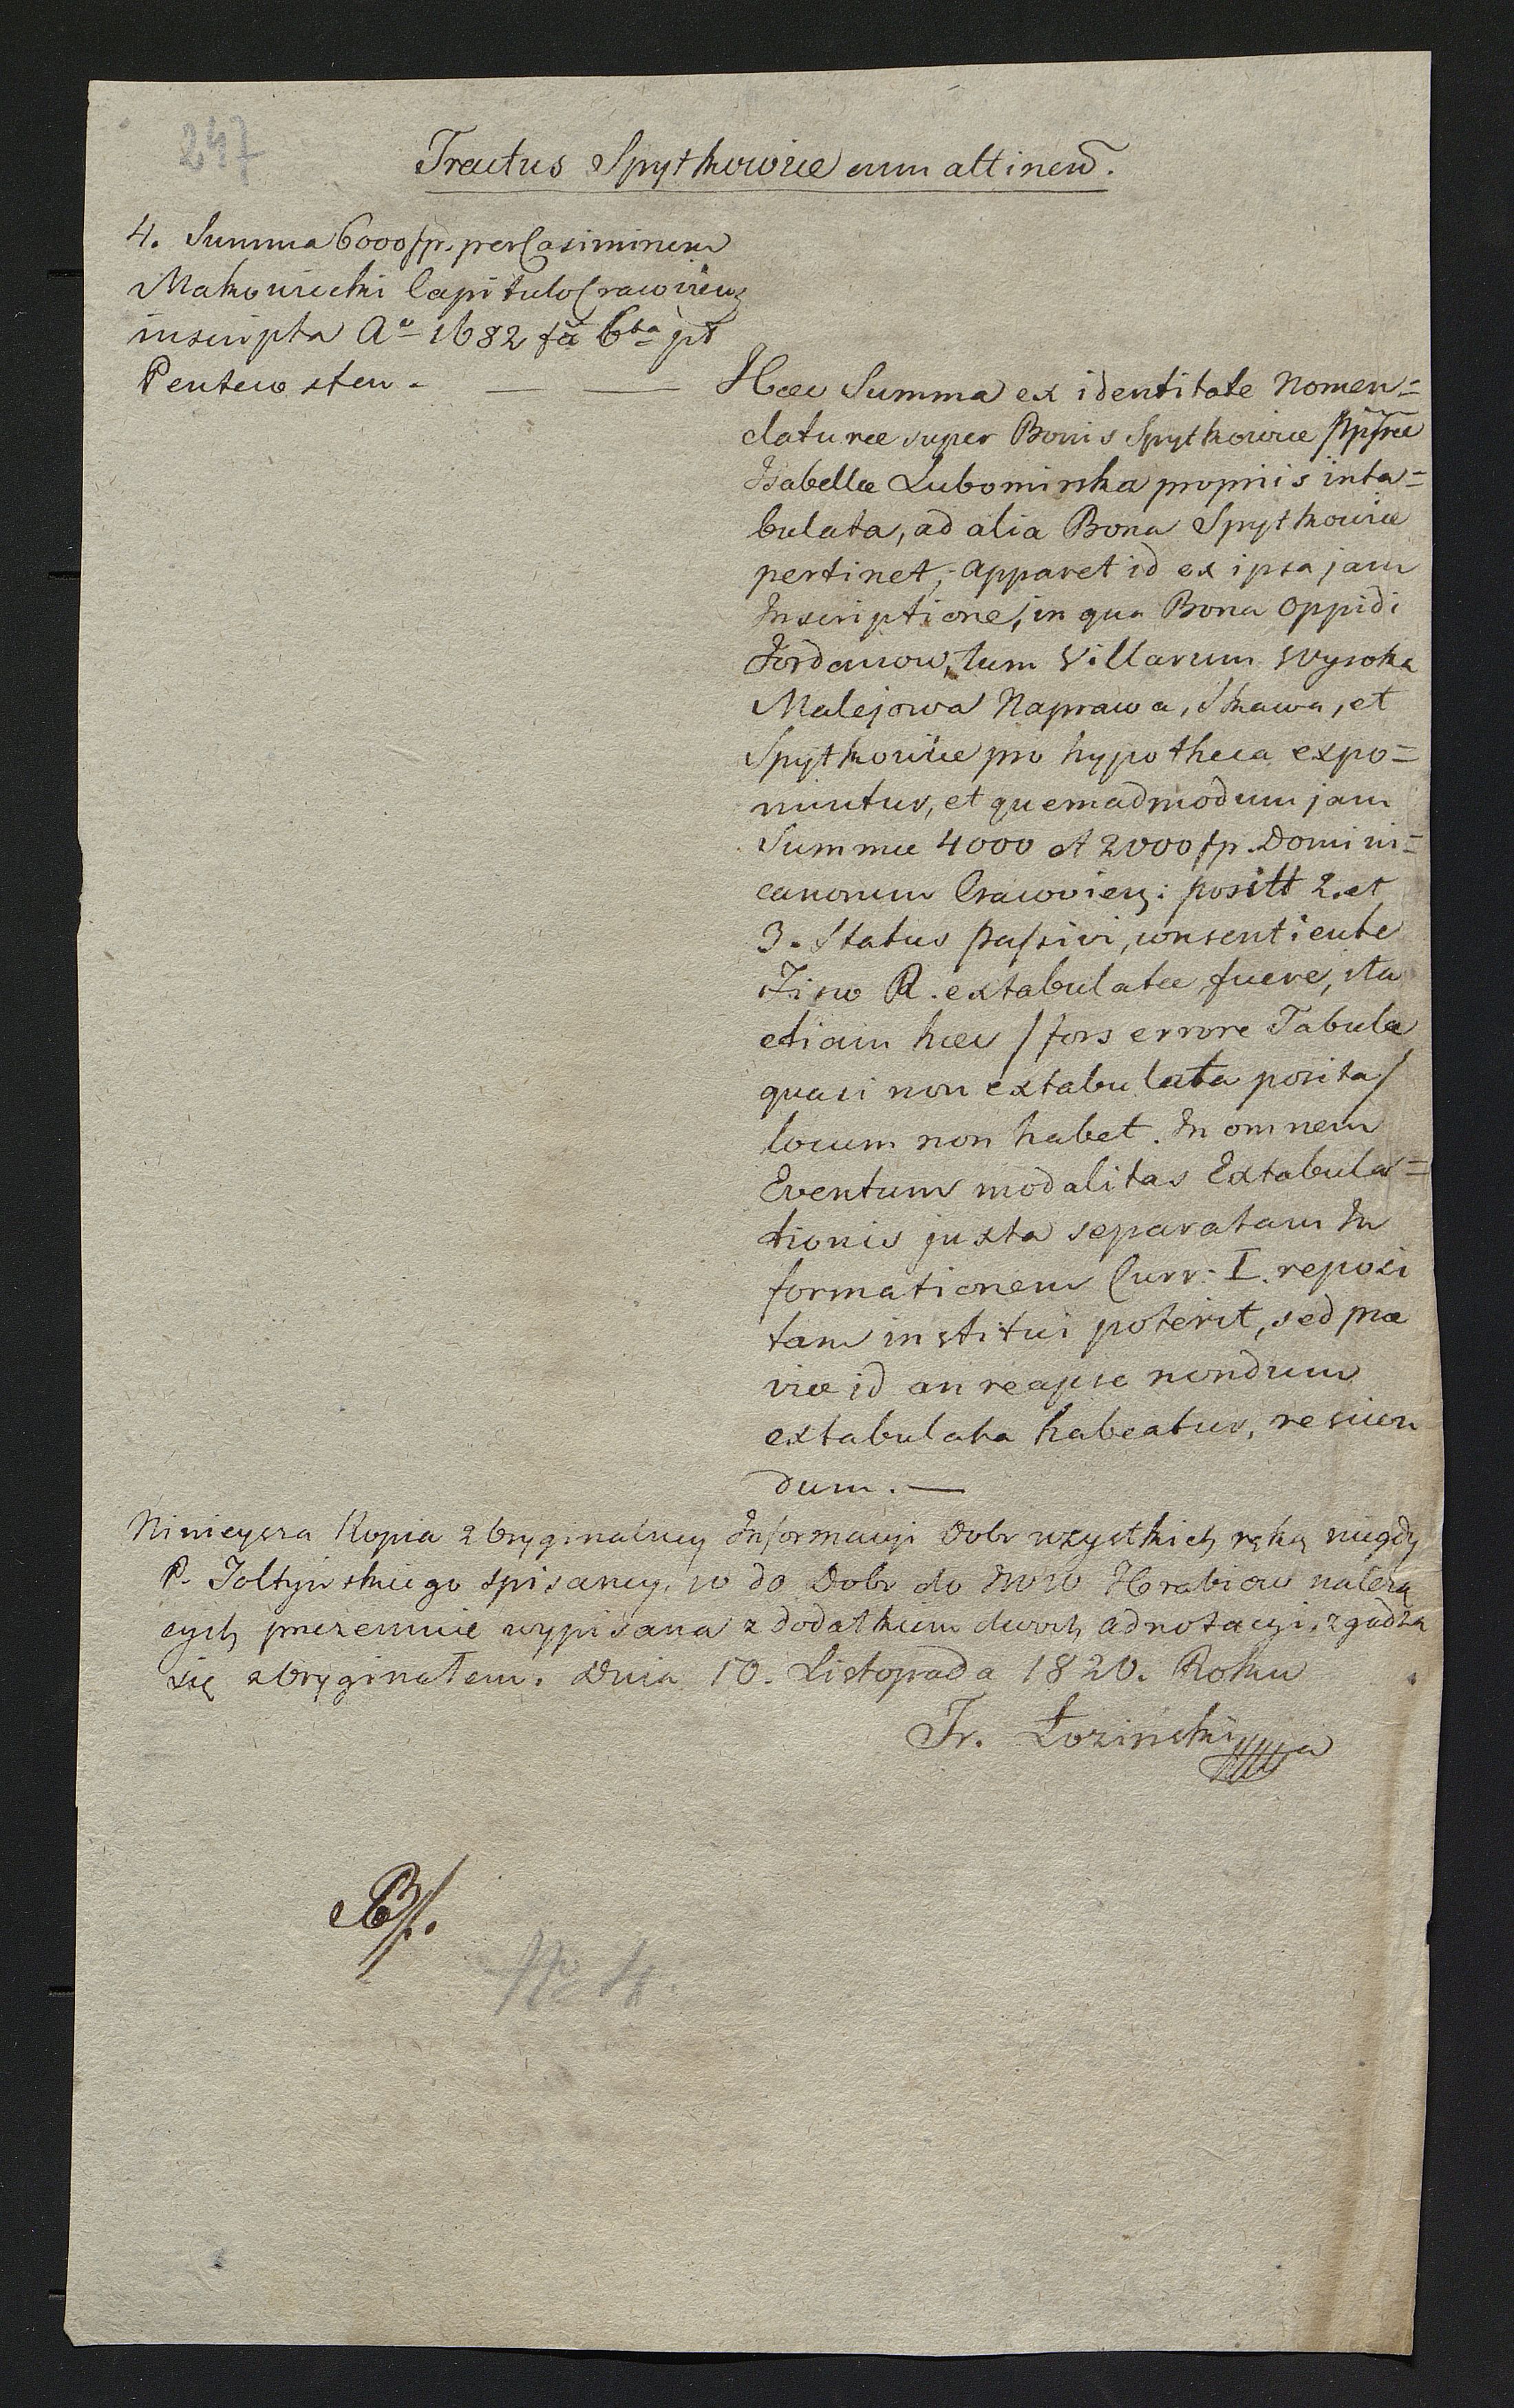 247
Tractus Spytkowice cum attinen.
4. Summa 6000 fp. per Casimirum
Makowiecki Capitulo Cracovien
inscripta Aº 1682 fa 6ta pt
Pentecosten. — —
Haec Summa ex identitate nomen=
claturae super Bonis Spytkowice
Isabellae Lubomirska propriis inta=
bulata, ad alia Bona Spytkowice
pertinet; apparet id ex ipsa jam
Inscriptione, in qua Bona Oppidi
Jordanow, tum Villarum Wysoka
Malejowa Naprawa, Skawa, et
Spytkowice pro hypotheca expo=
nuntur, et quemadmodum jam
Summae 4000 et 2000 fp. Domini=
canorum Cracovien: positt 2. et
3. Status passivi, consentiente
Fisco R. extabulatae fuere, ita
etiam haec / fors errore Tabulae
quasi non extabulata posita /
locum non habet. In omnem
Eventum modalitas Extabula=
tionis juxta separatam In
formationem Curr: I. reposi
tam institui poterit, sed prae
vie id an reapse nondum
extabulata habeatur, rescien
dum. —
Ninieysza Kopia z Oryginalney Informacyi Dobr wszystkich ręką niegdy
P. Joltyńskiego spisaney, co do Dobr do JWW Hrabiow należą
cych przezemnie wypisana z dodatkiem dwoch adnotacyi, zgadza
się z Oryginałem. Dnia 10. Listopada 1820. Roku
Fr. Łoziński
No 4.